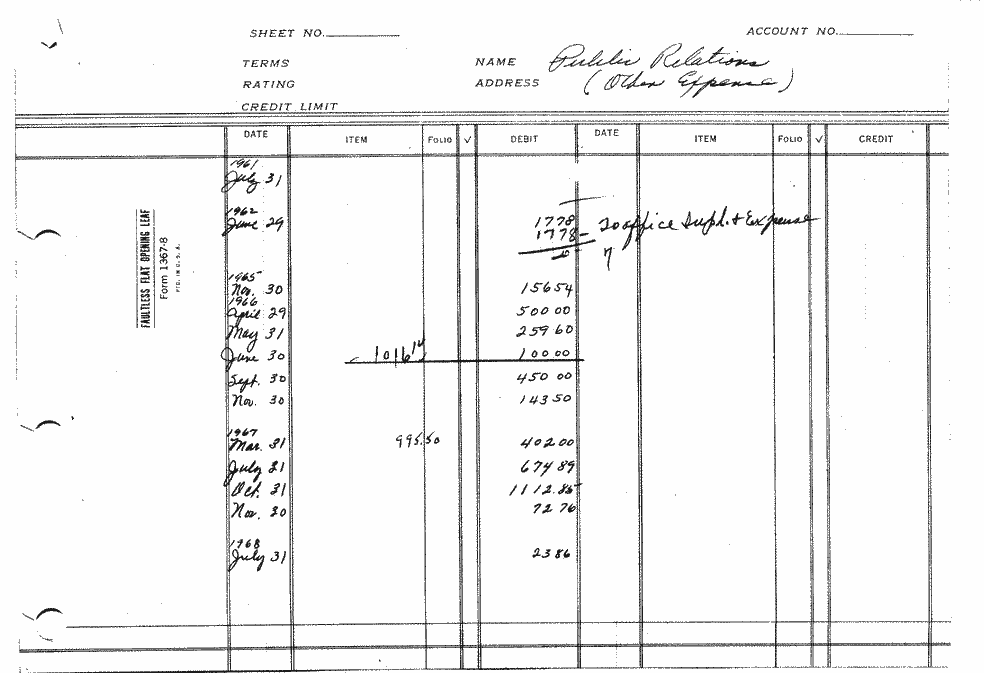 SHEET NO.
ACCOUNT NO.
TERMS
NAME Public Relations
RATING
ADDRESS (Other Expense)
CREDIT LIMIT
DATE ITEM FOLIO √ DEBIT DATE ITEM FOLIO √ CREDIT
1961
July 31
1962
June 29 1778
1778 - To office Supl. & Expense
-0-
FAULTLESS FLAT OPENING LEAF
Form 1367-8
PTD. IN U.S.A.
1965
Nov. 30 156 54
1966
April 29 500 00
May 31 259 60
June 30 1016 14 100 00
Sept. 30 450 00
Nov. 30 143 50
1967
Mar. 31 995.50 402.00
July 31 674 89
Oct. 31 1112.85
Nov. 30 72 76
1968
July 31 23 86